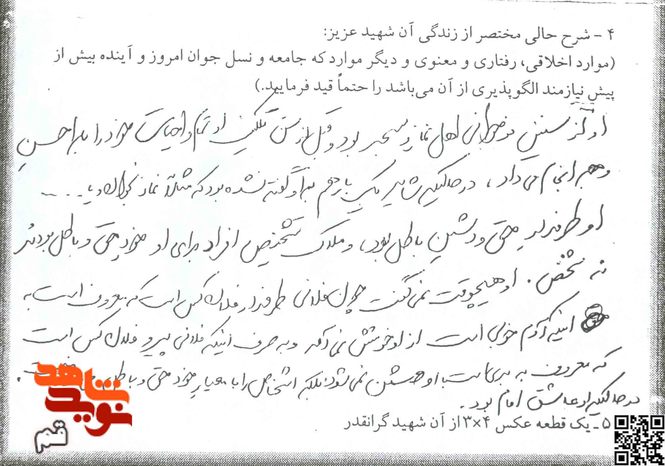 ۴ - شرح حالی مختصر از زندگی آن شهید عزیز:
(موارد اخلاقی، رفتاری و معنوی و دیگر موارد که جامعه و نسل جوان امروز و آینده بیش از
پیش نیازمند الگوپذیری از آن می‌باشد را حتماً قید فرمایید.)
او از سنین نوجوانی اهل نماز و مسجد بود و قبل از سن تکلیف او تمام واجبات خود را به احسن
وجه انجام می‌داد، در حالیکه شاید یکبار هم به او گفته نشده بود که مثلاً نماز خوانده‌ای یا.....
او طرفدار حق و دشمن باطل بود، و ملاک تشخیص افراد برای او خود حق و باطل بودند
نه شخص. او هیچوقت نمی‌گفت چون فلانی طرفدار فلان کس است که معروف است به
اینکه آدم خوبی است از او خوشش نمی‌آمد و به صرف اینکه فلانی پیرو فلان کس است
که معروف به است با او دشمن نمی‌شود؛ بلکه اشخاص را با معیار خود حق و باطل
در حالیکه او عاشق امام بود.
۵ - یک قطعه عکس ۴×۳ از آن شهید گرانقدر
نوید شاهد
قم